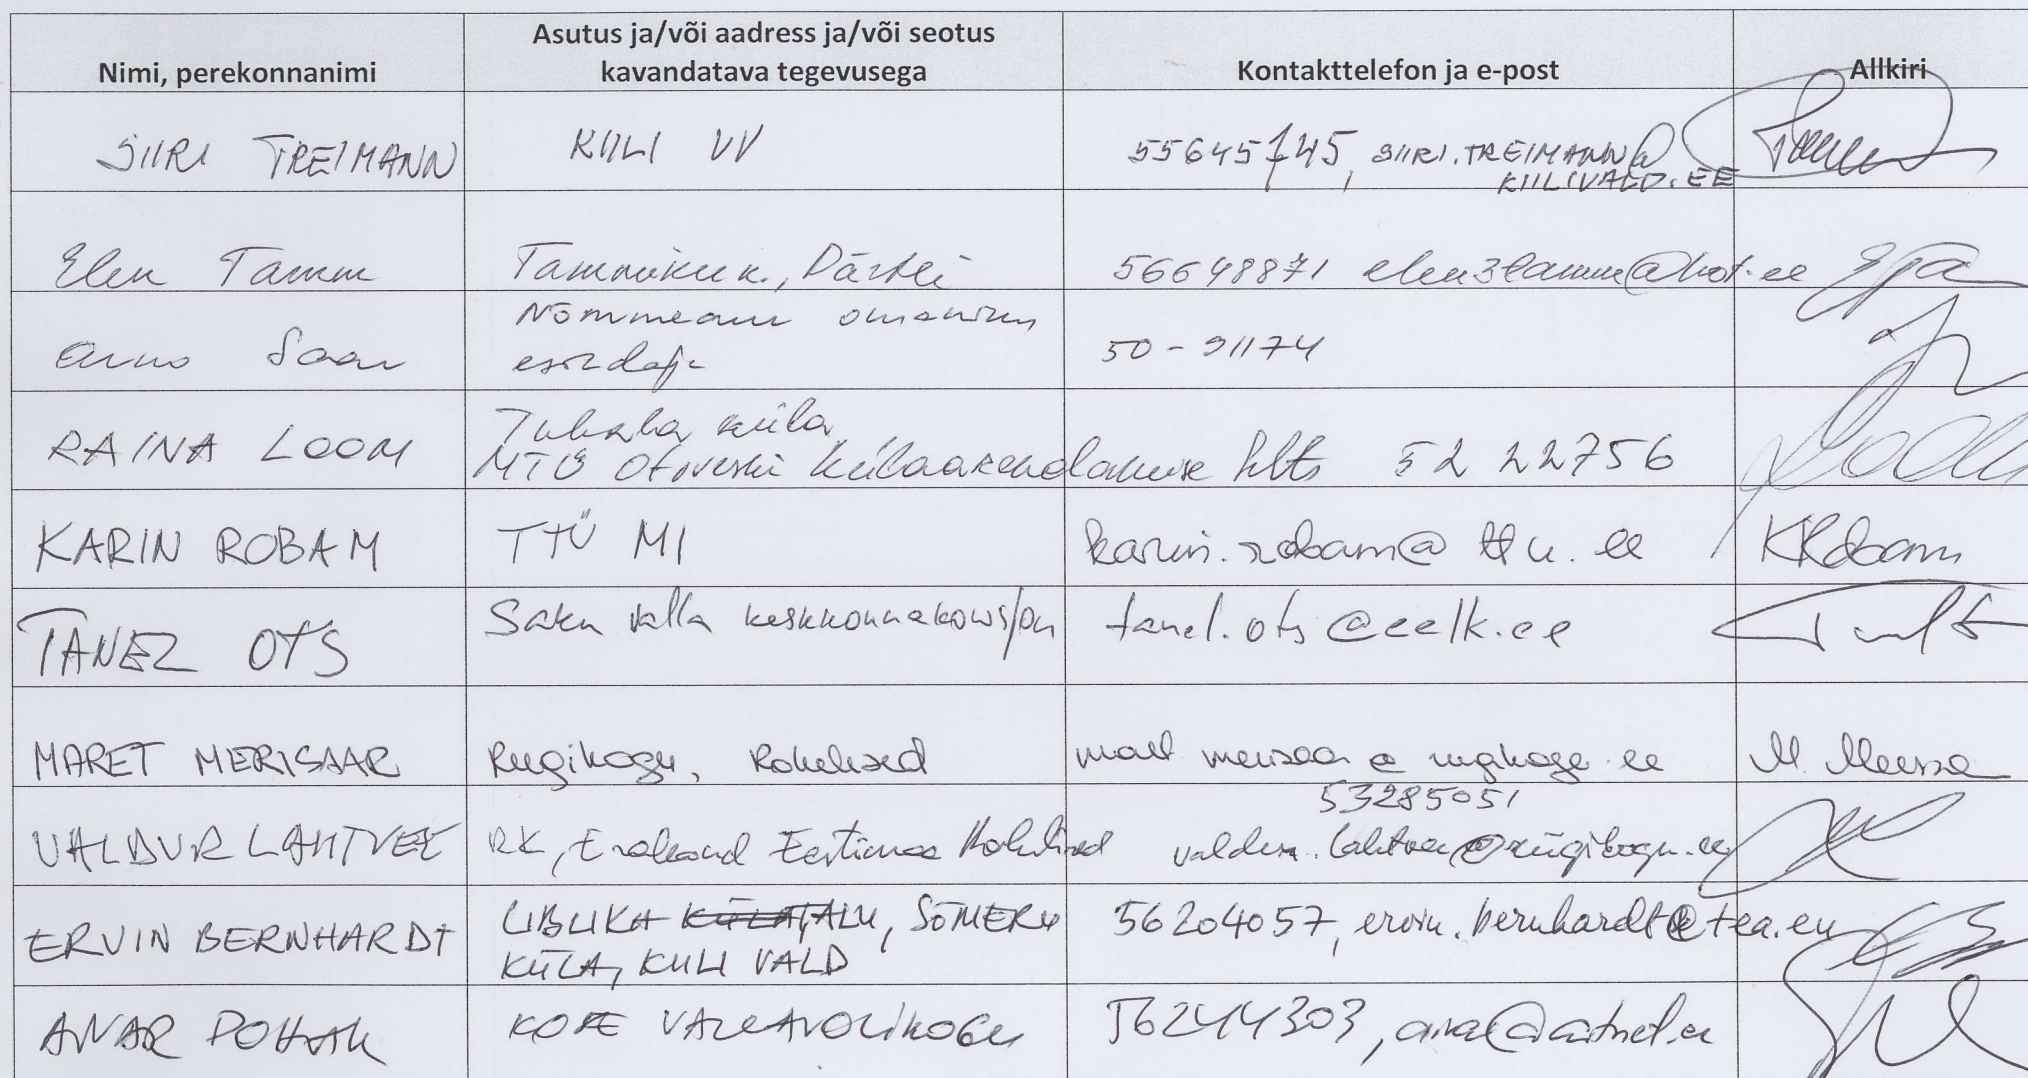 Nimi, perekonnanimi
Asutus ja/või aadress ja/või seotus
kavandatava tegevusega
Kontakttelefon ja e-post
Allkiri
SIIRI TREIMANN
KIILI VV
55645745, SIIRI.TREIMANN@
KIILIVALD.EE
Elen Tamm
Tammiku k.,
56648871 elen3tamm@hot.ee
Arno Saar
Nõmmearu omaniku
esindaja
50-91174
RAINA LOOM
Tuhala küla
MTÜ Otiveski külaarendamise selts 52 22756
KARIN ROBAM
TTÜ MI
karin.robam@ttu.ee
KRobam
TANEL OTS
Saku valla keskkonnakomisjon
tanel.ots@eelk.ee
MARET MERISAAR
Riigikogu, Rohelised
maret merisaar@riigikogu.ee
VALDUR LAHTVEE
RK, Erakond Eestimaa Rohelised
53285051
valdur.lahtvee@riigikogu.ee
ERVIN BERNHARDT
LIBLIKA KÜLA TALU, SÕMERU
KÜLA, KIILI VALD
56204057, ervin.bernhardt@tea.eu
AIVAR POHLAK
KOSE VALLAVOLIKOGU
56244303,